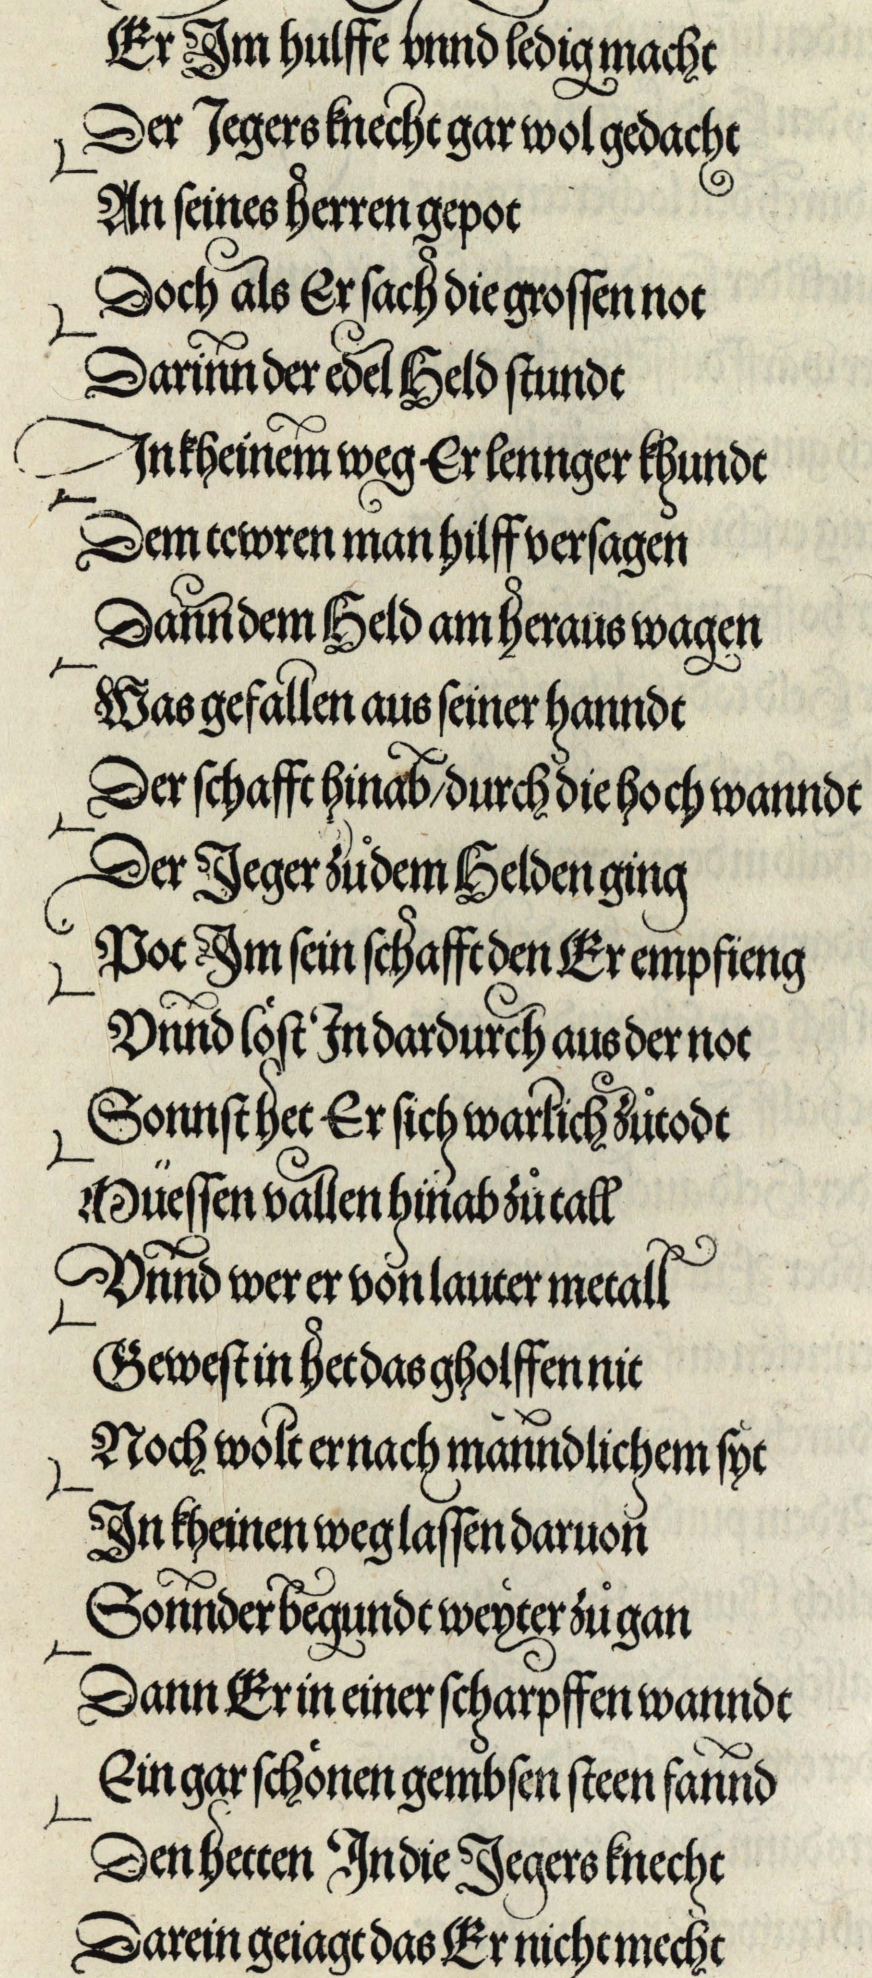 Er Im hulffe vnnd ledig macht
Der Jegers knecht gar wol gedacht
An seines herren gepot
Doch als Er sach die grossen not
Darinn der edel Held stundt
In kheinem weg Er lennger khundt
Dem tewren man hilff versagen
Dann dem Held am heraus wagen
Was gefallen aus seiner hanndt
Der schafft hinab/durch die hoch wanndt
Der Jeger zůdem Helden ging
Pot Im sein schafft den Er empfieng
Vnnd löst In dardurch aus der not
Sonnst het Er sich warlich zůtodt
Müessen vallen hinab zů tall
Vnnd wer er von lauter metall
Gewest in het das gholffen nit
Noch wolt er nach männdlichem syt
In kheinen weg lassen daruon
Sonnder begundt weyter zů gan
Dann Er in einer scharpffen wanndt
Ein gar schönen gembsen steen fannd
Den hetten In die Jegers knecht
Darein geiagt das Er nicht mecht